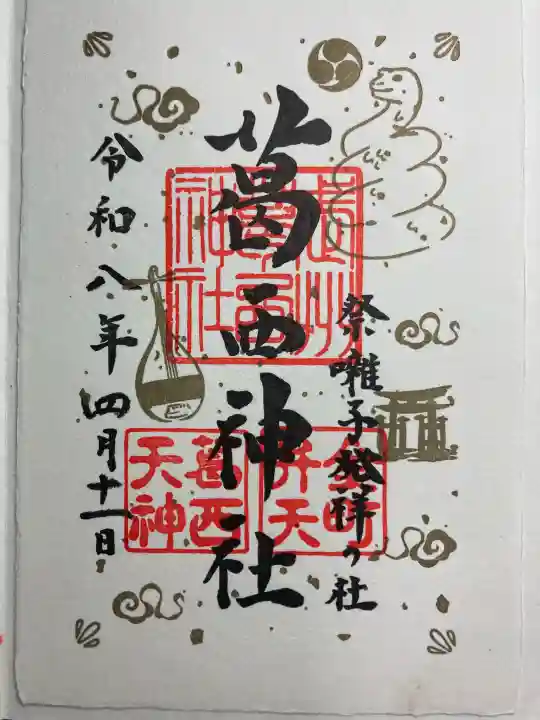 祭囃子発祥の社
葛西神社
令和八年四月十一日
葛西神社
葛西
天神
弁天